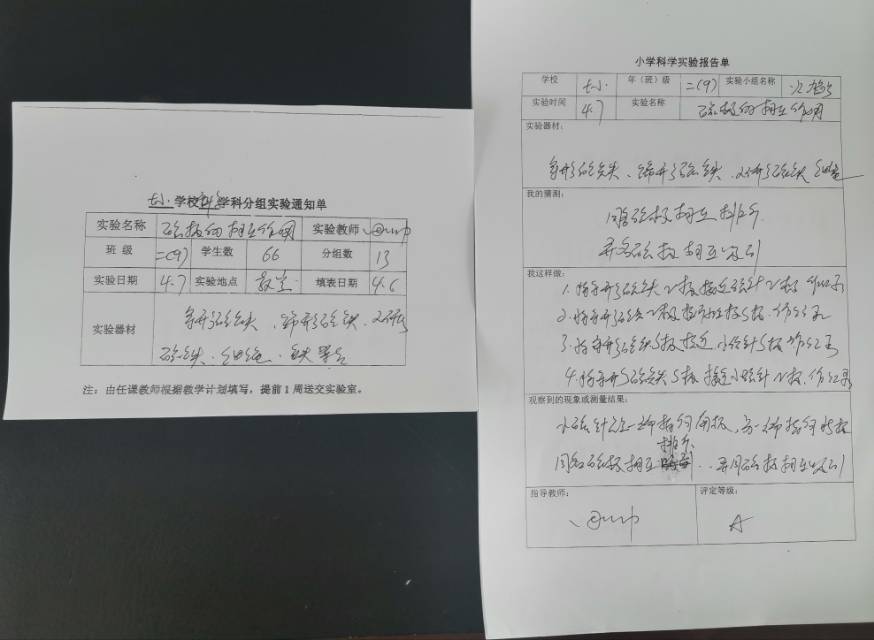 七小·学校科学学科分组实验通知单
实验名称 磁极的相互作用 实验教师
班 级 二(9) 学生数 66 分组数 13
实验日期 4.7 实验地点 教室 填表日期 4.6
实验器材
条形磁铁、蹄形磁铁、
磁铁、细绳、铁架台
注:由任课教师根据教学计划填写,提前1周送交实验室。
小学科学实验报告单
学校 七小· 年(班)级 二(9) 实验小组名称
实验时间 4.7 实验名称 磁极的相互作用
实验器材:
条形磁铁、蹄形磁铁、 磁铁 细绳
我的猜测:
同名磁极相互排斥
异名磁极相互吸引
我这样做:
1.将条形磁铁N极接近小磁针N极 作记录
2.将条形磁铁N极接近小磁针S极.作记录
3.将条形磁铁S极接近小磁针S极 作记录
4.将条形磁铁S极接近小磁针N极.作记录
观察到的现象或测量结果:
小磁针
排斥
同名磁极相互 磁极相互吸引
指导教师: 评定等级:
A